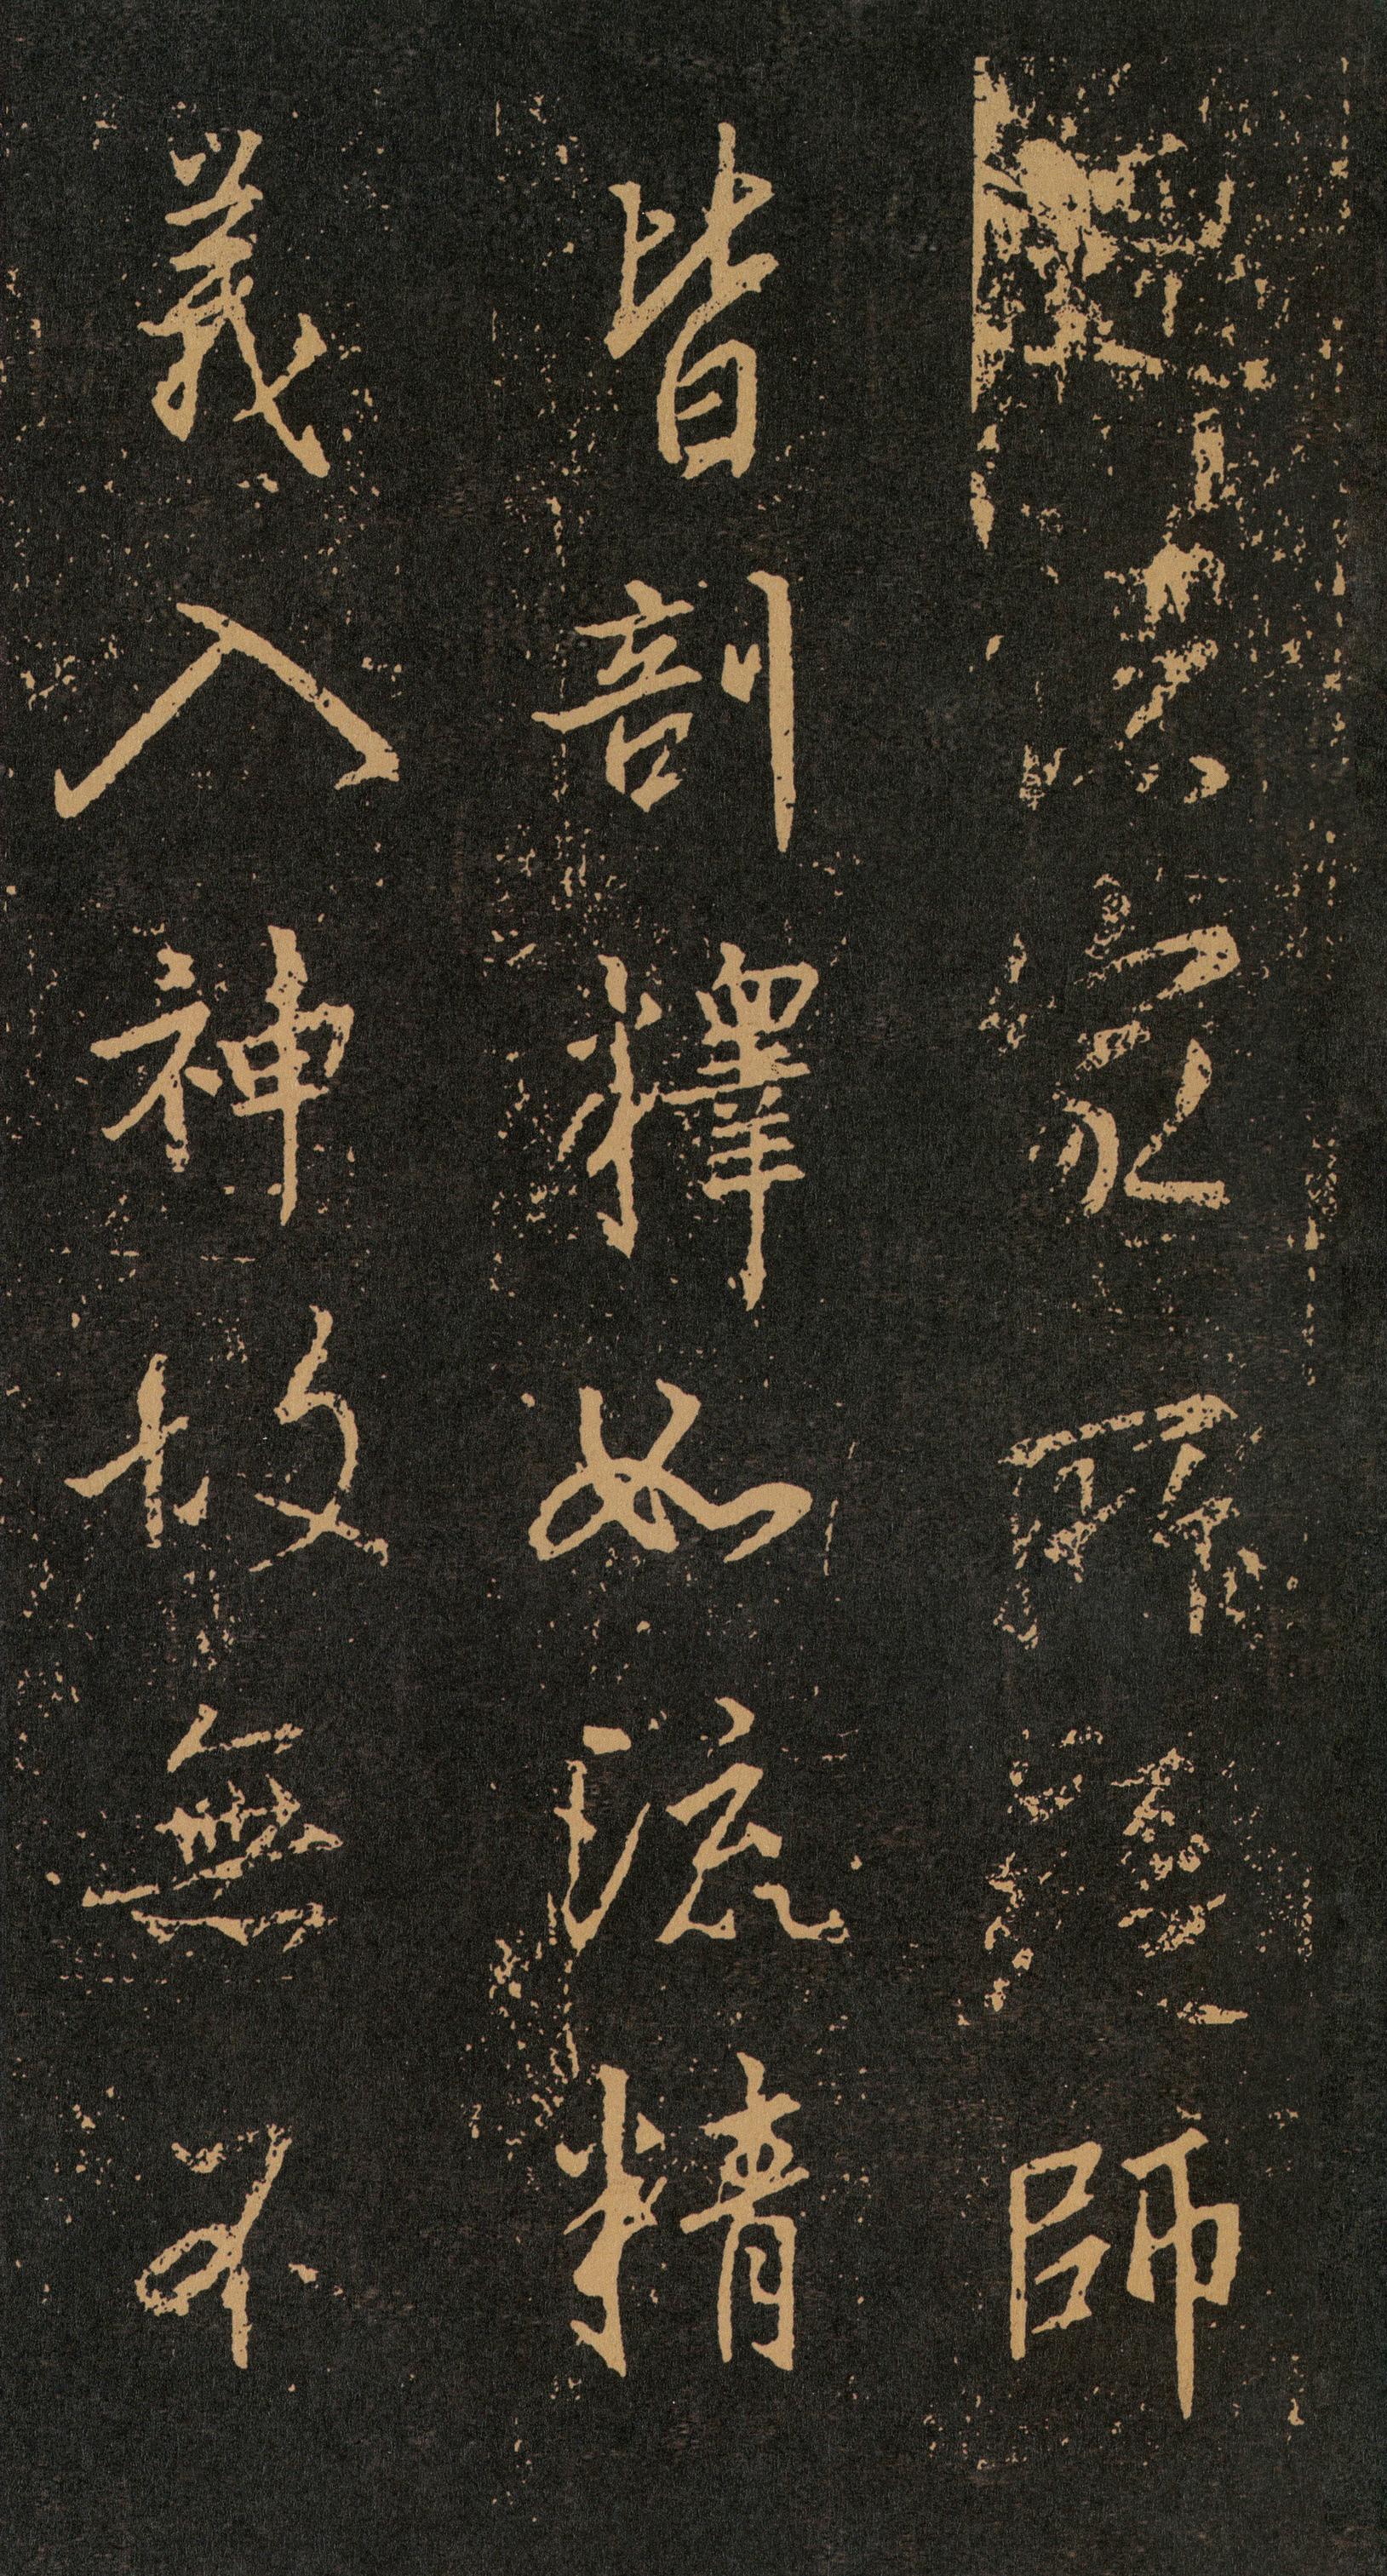 所師
皆剖釋如流精
義入神故無不